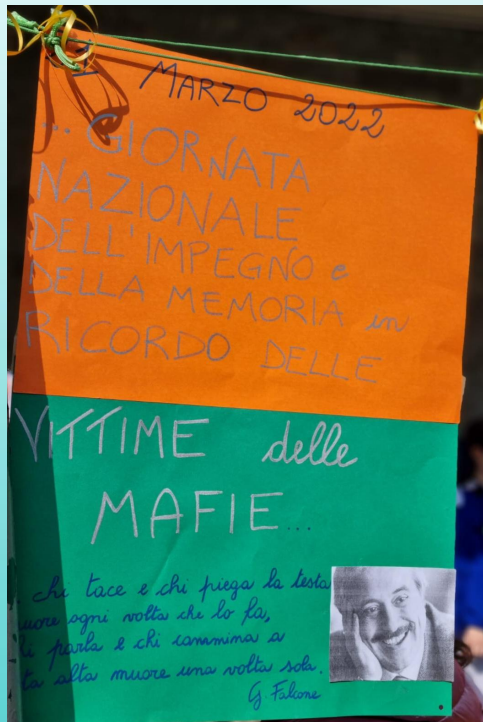 MARZO 2022
... GIORNATA
NAZIONALE
DELL'IMPEGNO e
DELLA MEMORIA in
RICORDO DELLE
VITTIME delle
MAFIE...
chi tace e chi piega la testa
muore ogni volta che lo fa,
parla e chi cammina a
alta muore una volta sola.
G Falcone